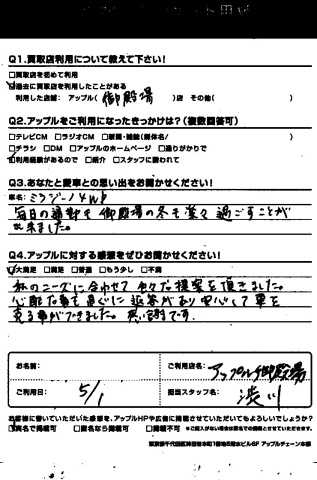 Q1.買取店利用について教えて下さい!
□買取店を初めて利用
☑過去に買取店を利用したことがある
利用した店舗: アップル( 御殿場 )店 その他( )
Q2.アップルをご利用になったきっかけは?(複数回答可)
□テレビCM □ラジオCM □新聞・雑誌(媒体名/ )
□チラシ □DM □アップルのホームページ □通りがかりで
☑利用経験があるので □紹介 □スタッフに勧われて
Q3.あなたと愛車との思い出をお聞かせください!
車名: ミラジーノ4WD
毎日の通勤も御殿場の冬も楽々過ごすことが
出来ました。
Q4.アップルに対する感想をぜひお聞かせください!
☑大満足 □満足 □普通 □もう少し □不満
私のニーズに合わせて色々な提案を頂きました。
心配な事も直ぐに返答があり安心して車を
売る事ができました。感謝です。
お名前:
ご利用店名: アップル御殿場
ご利用日: 5/1
担当スタッフ名: 渋川
お客様に書いていただいた感想を、アップルHPや広告に掲載させていただいてもよろしいでしょうか?
☑実名で掲載可 □匿名なら掲載可 □掲載不可 ※ご記入がない場合は匿名での掲載とさせていただきます。